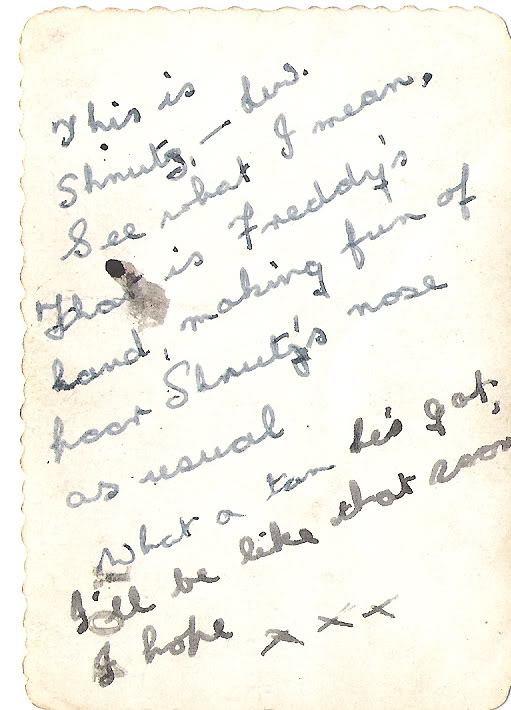 This is
Shnutz, – Luv.
See what I mean,
That is Freddy's
hand, making fun of
poor Shnutz's nose
as usual
What a tan he's got,
I'll be like that soon
I hope x x x